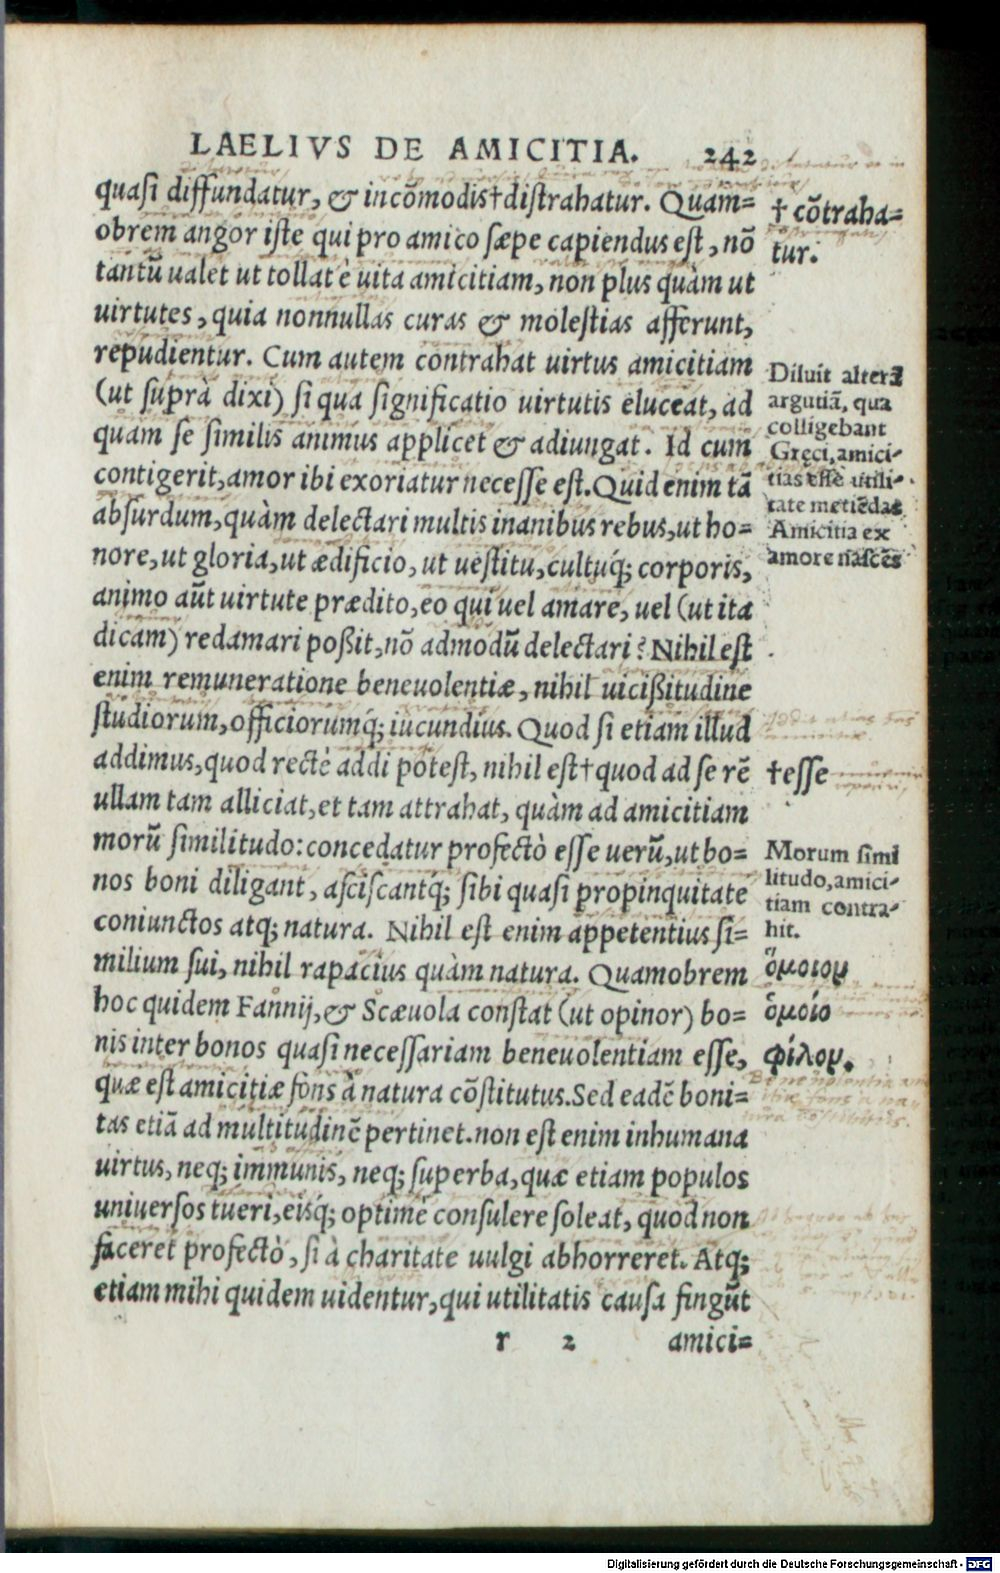 LAELIVS DE AMICITIA. 242
quasi diffundatur, & incõmodis†distrahatur. Quam=
obrem angor iste qui pro amico sæpe capiendus est, nõ
tantũ ualet ut tollat è uita amicitiam, non plus quàm ut
uirtutes, quia nonnullas curas & molestias afferunt,
repudientur. Cum autem contrahat uirtus amicitiam
(ut suprà dixi) si qua significatio uirtutis eluceat, ad
quàm se similis animus applicet & adiungat. Id cum
contigerit, amor ibi exoriatur necesse est. Quid enim tã
absurdum, quàm delectari multis inanibus rebus, ut ho=
nore, ut gloria, ut ædificio, ut uestitu, cultuq́; corporis,
animo aũt uirtute prædito, eo qui uel amare, uel (ut ita
dicam) redamari poßit, nõ admodũ delectari? Nihil est
enim remuneratione beneuolentiæ, nihil uicißitudine
studiorum, officiorumq́; iucundius. Quod si etiam illud
addimus, quod rectè addi potest, nihil est†quod ad se rẽ
ullam tam alliciat, et tam attrahat, quàm ad amicitiam
morũ similitudo: concedatur profectò esse uerũ, ut bo=
nos boni diligant, asciscantq́; sibi quasi propinquitate
coniunctos atq; natura. Nihil est enim appetentius si=
milium sui, nihil rapacius quàm natura. Quamobrem
hoc quidem Fannij, & Scæuola constat (ut opinor) bo=
nis inter bonos quasi necessariam beneuolentiam esse,
quæ est amicitiæ fons à natura cõstitutus. Sed eadẽ boni=
tas etiã ad multitudinẽ pertinet. non est enim inhumana
uirtus, neq; immunis, neq; superba, quæ etiam populos
uniuersos tueri, eisq́; optimè consulere soleat, quod non
faceret profectò, si à charitate uulgi abhorreret. Atq;
etiam mihi quidem uidentur, qui utilitatis causa fingũt
r 2 amici=
† cõtraha=
tur.
Diluit alterã
argutiã, qua
colligebant
Gręci, amici-
tias esse utili-
tate metiẽdas
Amicitia ex
amore nascẽs
†esse
Morum simi
litudo, amici-
tiam contra-
hit.
ὅμοιομ
ὁμοίο
φίλομ.
Digitalisierung gefördert durch die Deutsche Forschungsgemeinschaft - DFG